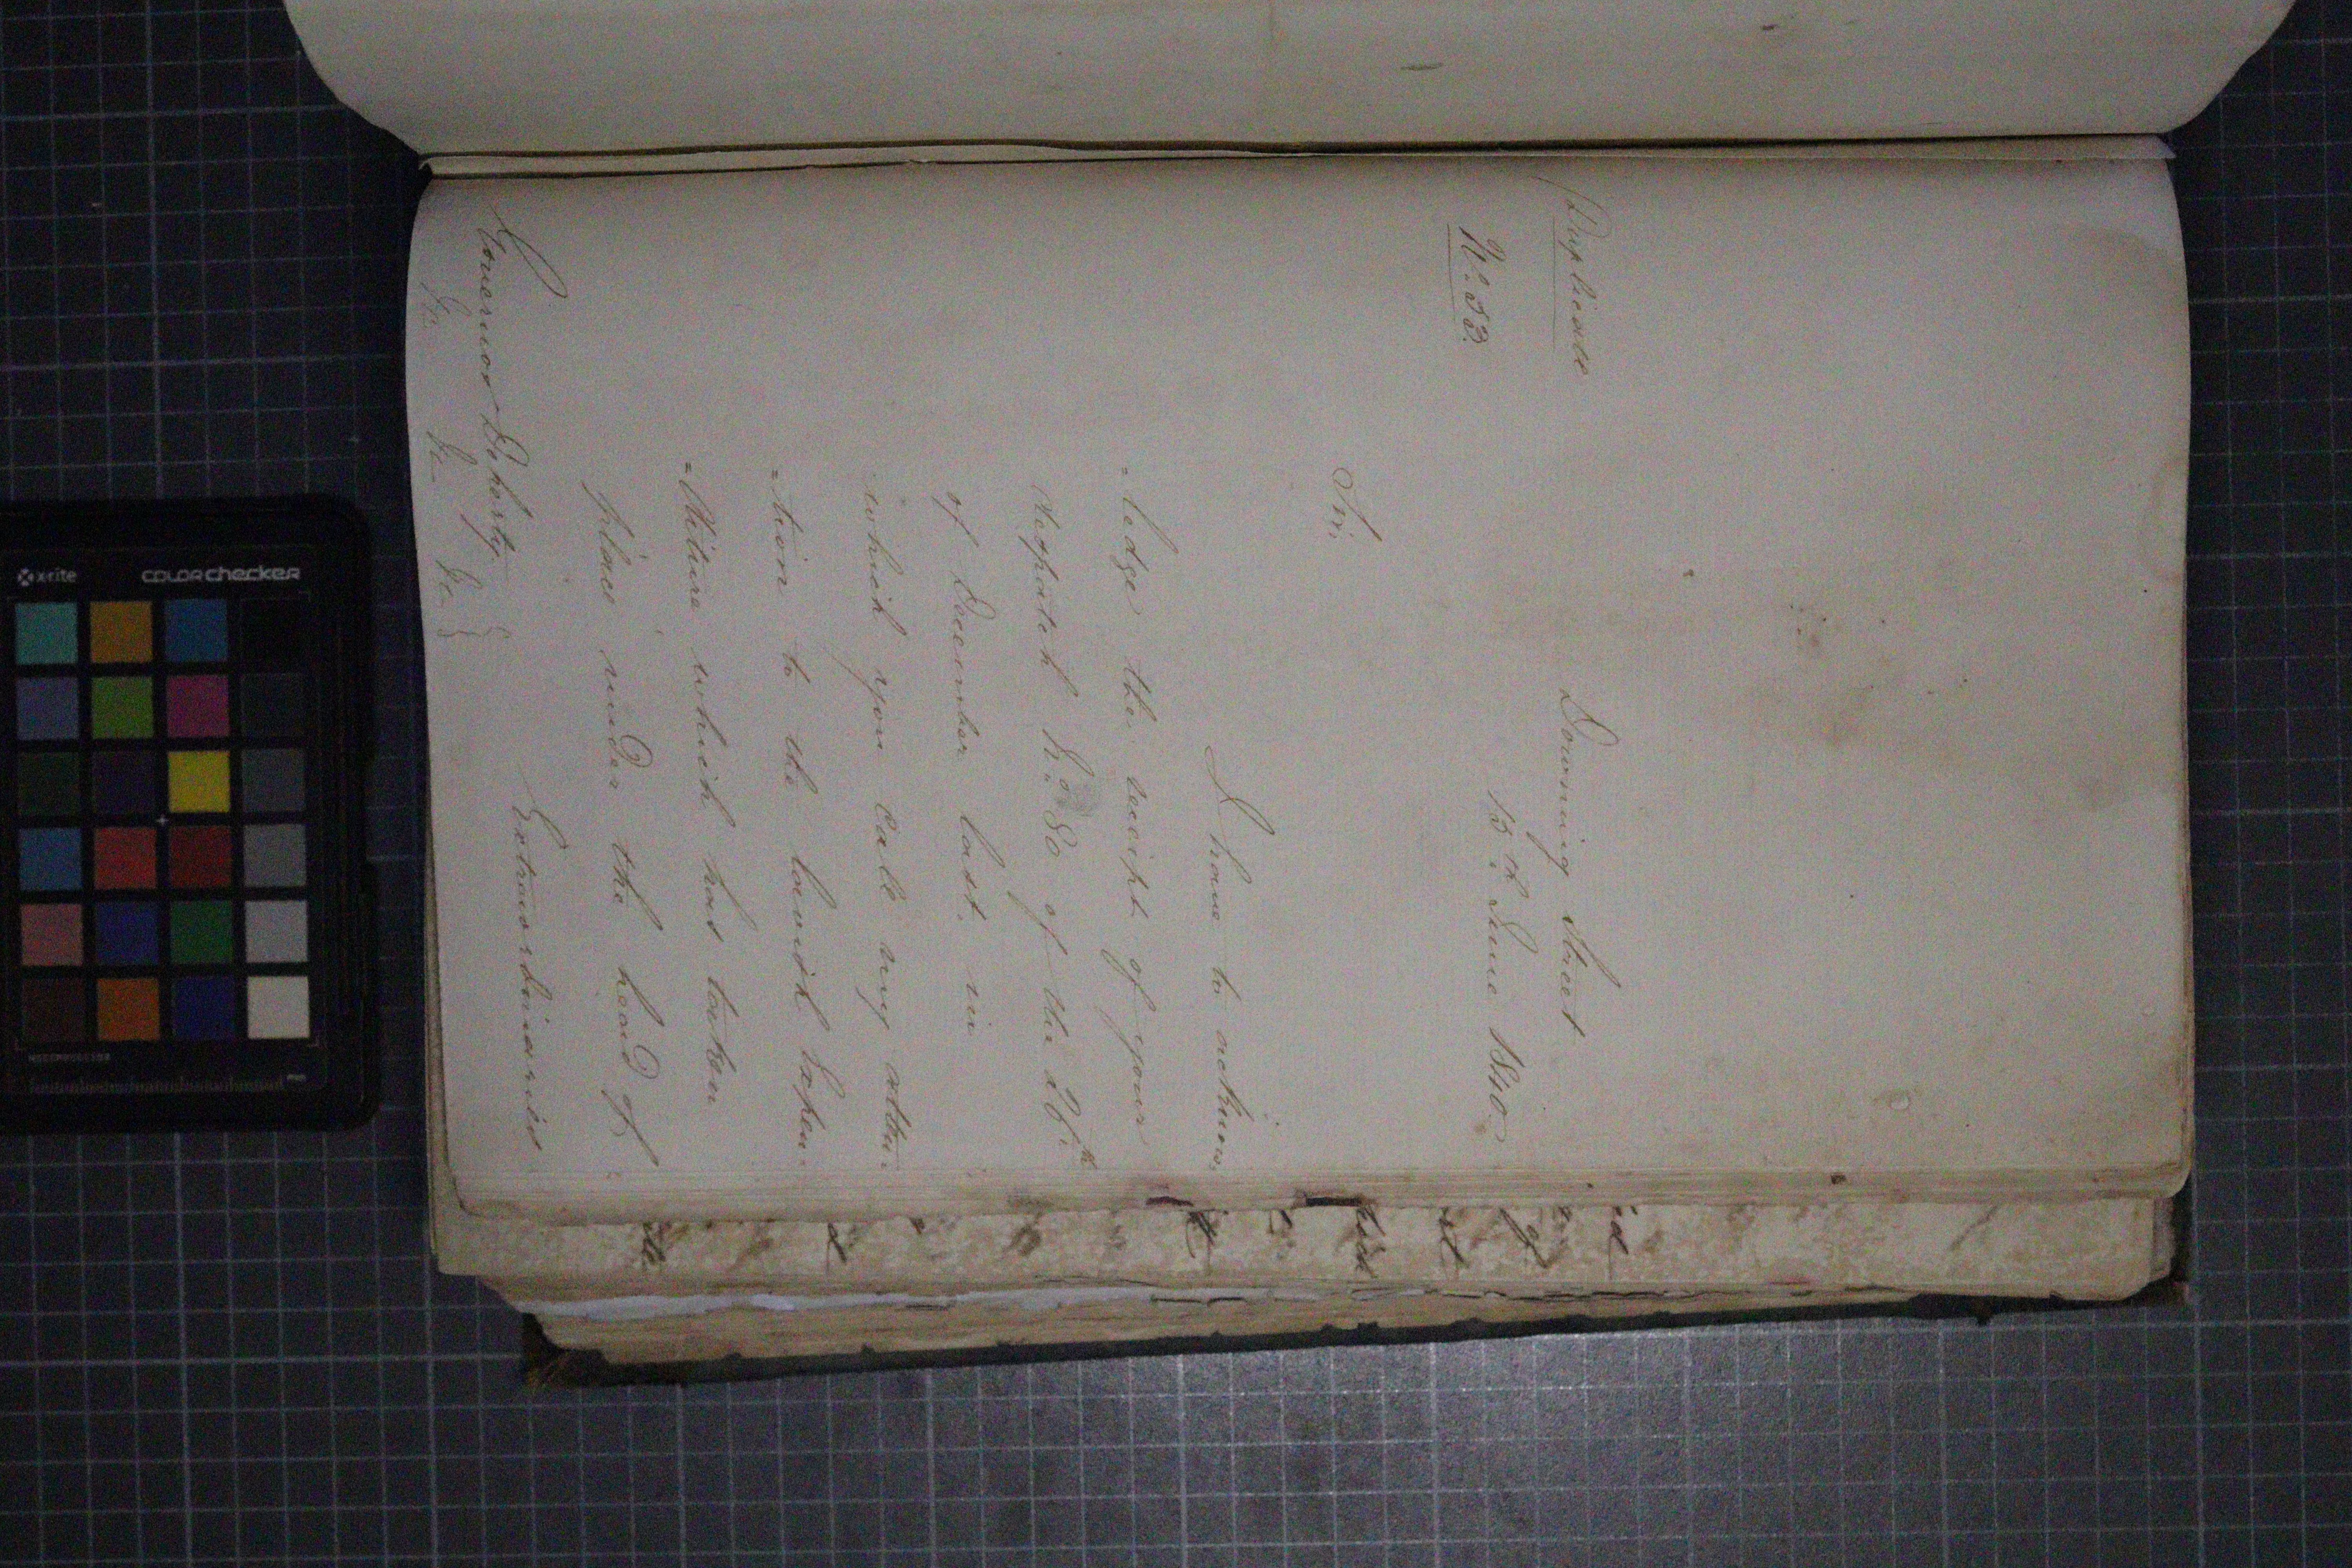 Duplicate
Downing Street
N.o 53.
13th June 1840
Sir,
I have to acknow-
=ledge the receipt of your
Despatch N.o 80 of the 26th
of December last, in
which you call my atten-
=tion to the lavish Expen-
=diture which has taken
place under the head of
Extraordinaries
Governor Doherty
&c. &c. &c.
x-rite colorchecker